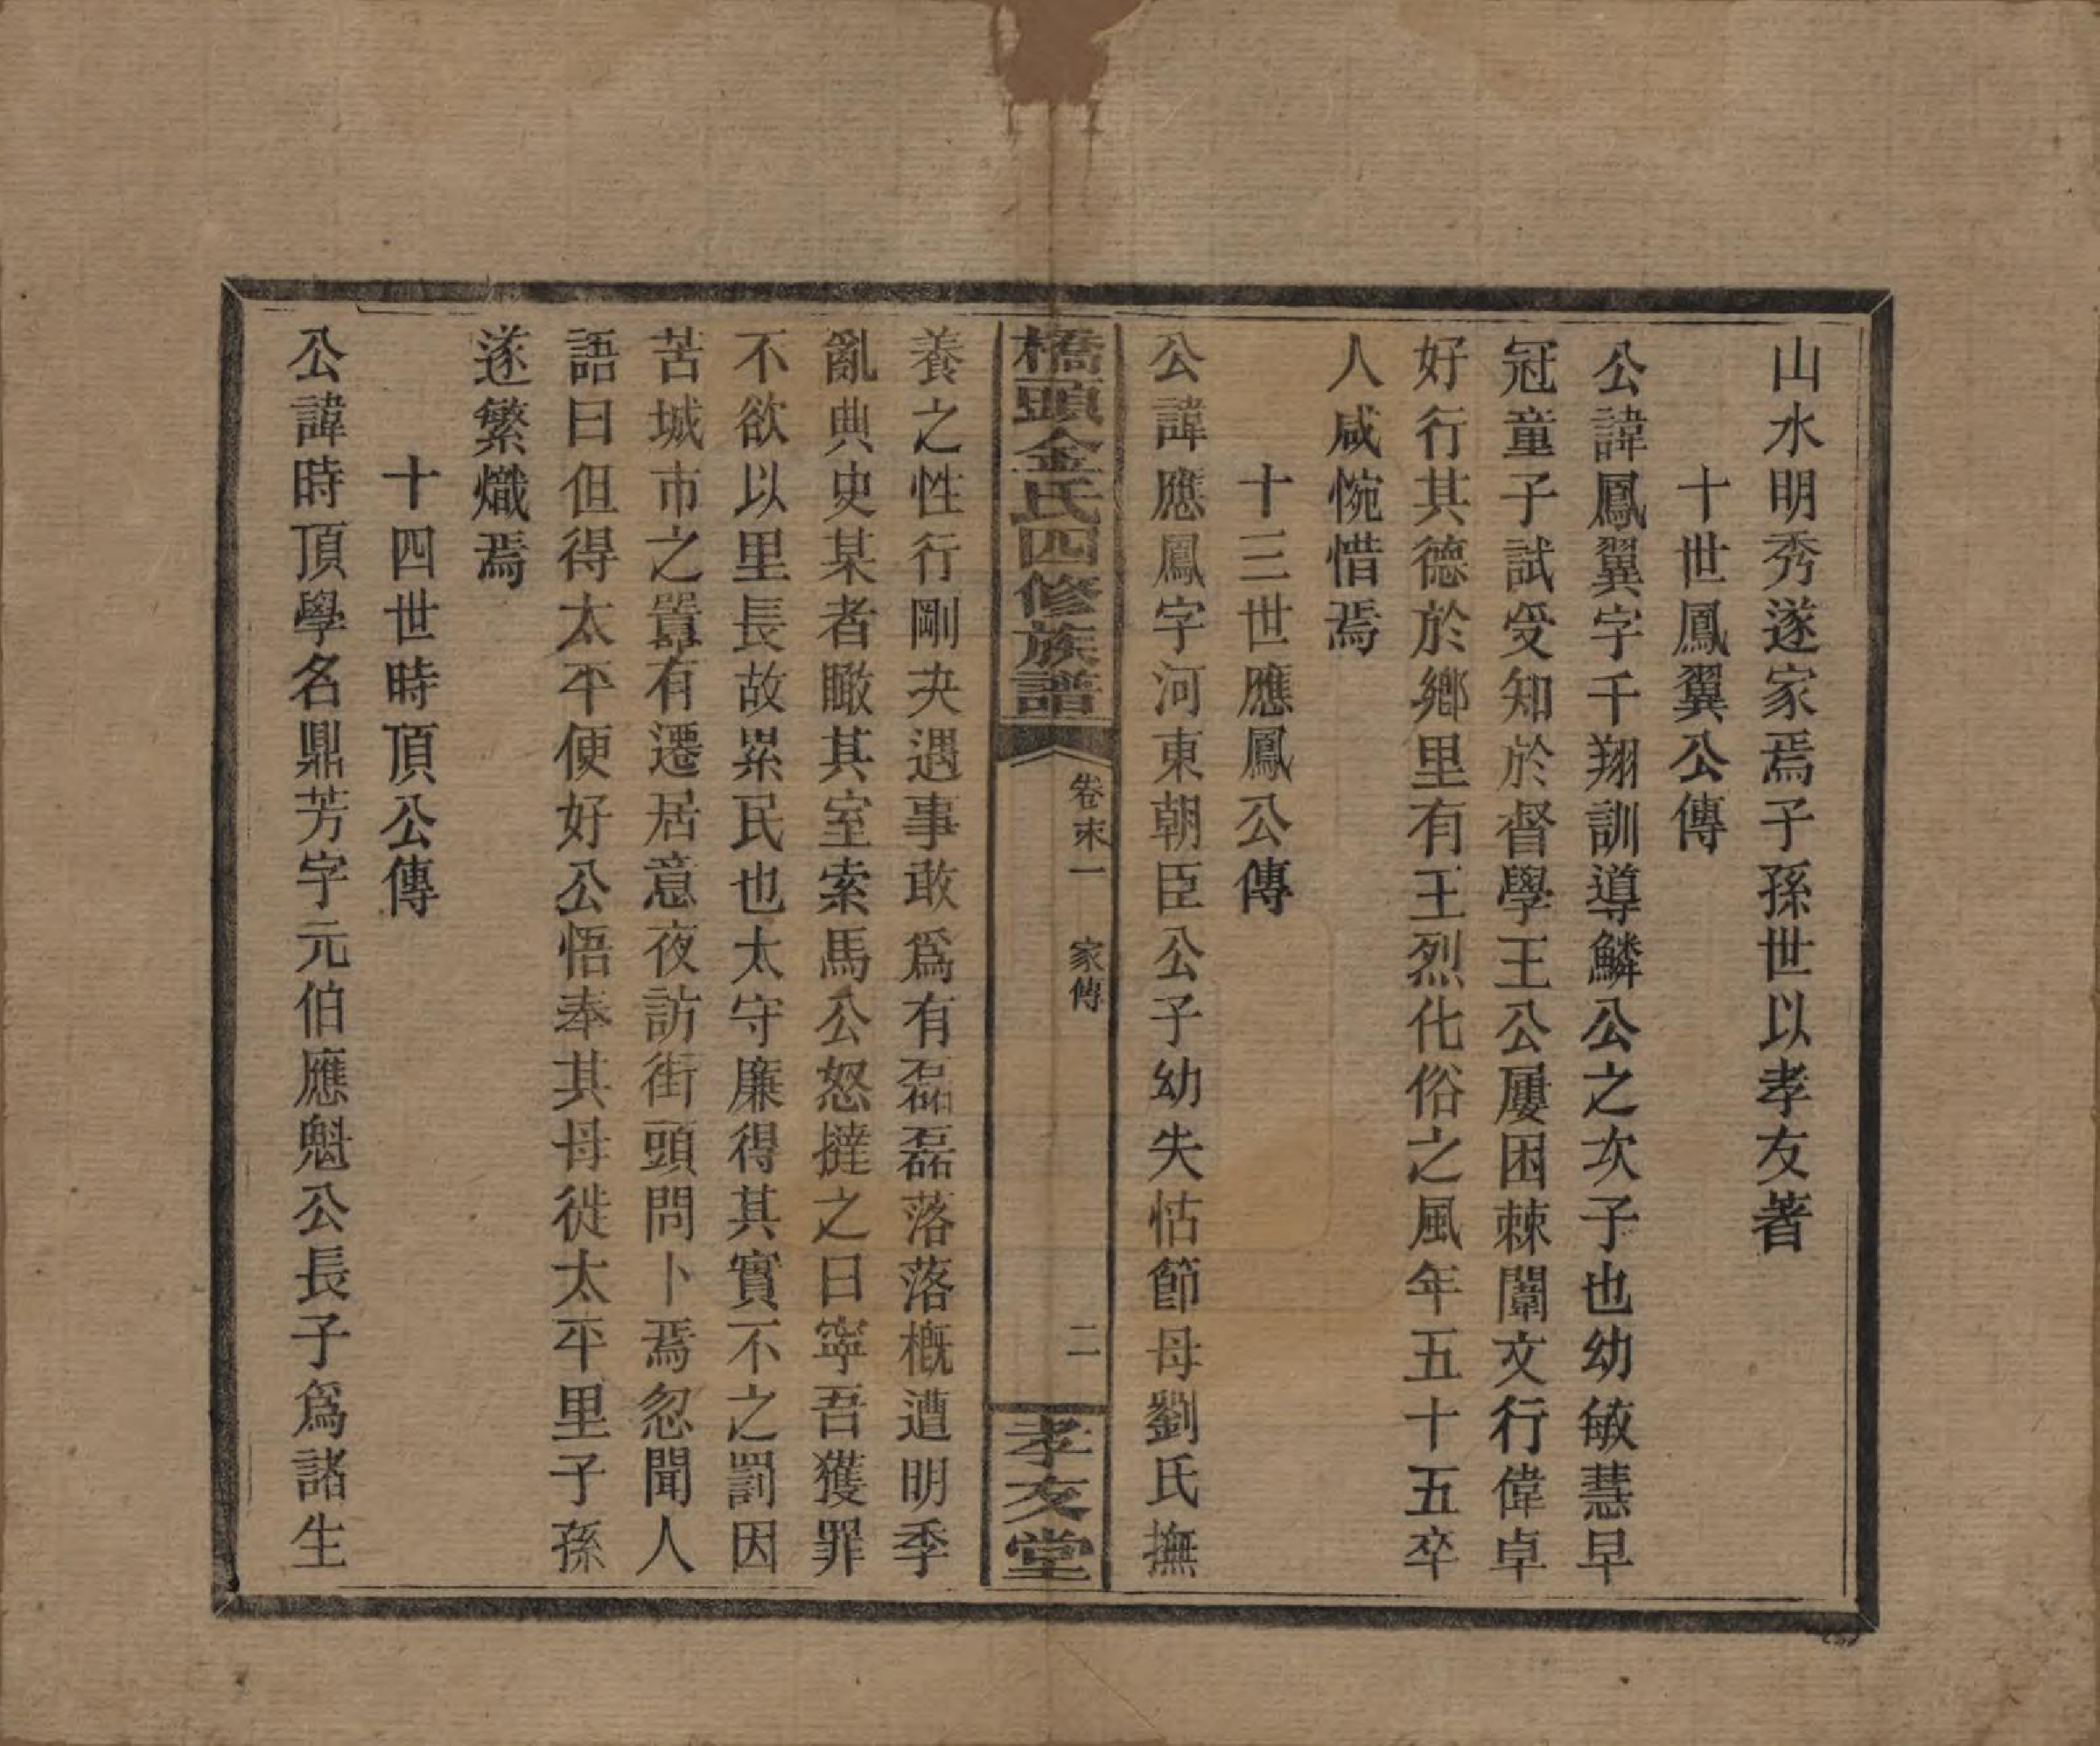 山水明秀遂家焉子孫世以孝友著
十世鳳翼公傳
公諱鳳翼字千翔訓導鱗公之次子也幼敏慧早
冠童子試受知於督學王公屢困棘闈文行偉卓
好行其德於鄉里有王烈化俗之風年五十五卒
人咸惋惜焉
十三世應鳳公傳
公諱應鳳字河東朝臣公子幼失怙節母劉氏撫
橋頭金氏四修族譜
卷末一 家傳
二
孝友堂
養之性行剛決遇事敢爲有磊磊落落概遭明季
亂典史某者瞰其室索馬公怒撻之曰寧吾獲罪
不欲以里長故累民也太守廉得其實不之罰因
苦城市之囂有遷居意夜訪街頭問卜焉忽聞人
語曰但得太平便好公悟奉其母徙太平里子孫
遂繁熾焉
十四世時頂公傳
公諱時頂學名鼎芳字元伯應魁公長子爲諸生